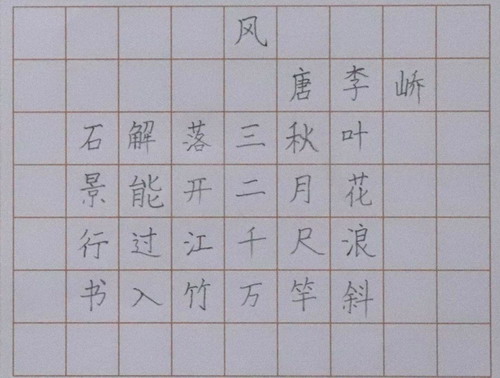 风
唐 李 峤
解落三秋叶
能开二月花
过江千尺浪
入竹万竿斜
石景行书